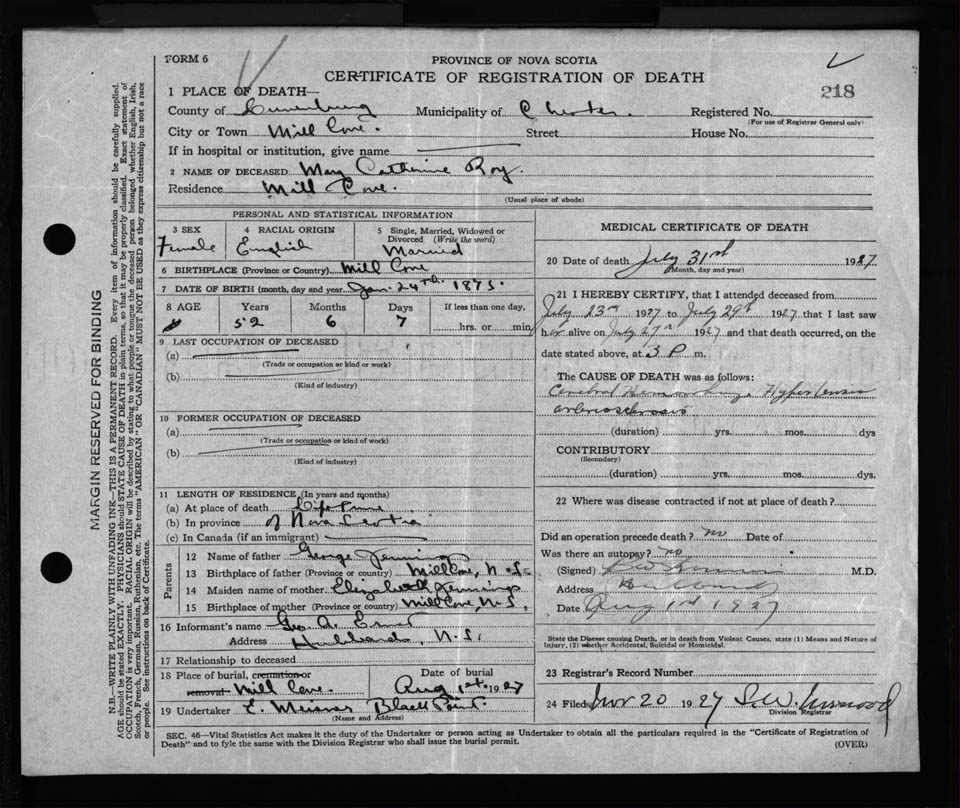 FORM 6
PROVINCE OF NOVA SCOTIA
CERTIFICATE OF REGISTRATION OF DEATH
218
1 PLACE OF DEATH—
County of Lunenburg Municipality of Chester. Registered No.
(For use of Registrar General only)
City or Town Mill Cove. Street House No.
If in hospital or institution, give name
2 NAME OF DECEASED Mary Catherine Roy.
Residence Mill Cove.
(Usual place of abode)
PERSONAL AND STATISTICAL INFORMATION
3 SEX Female
4 RACIAL ORIGIN English
5 Single, Married, Widowed or Divorced (Write the word) Married
6 BIRTHPLACE (Province or Country) Mill Cove
7 DATE OF BIRTH (month, day and year) Jan. 24th. 1875.
8 AGE Years Months Days If less than one day,
52 6 7 hrs. or min.
9 LAST OCCUPATION OF DECEASED
(a)
(Trade or occupation or kind of work)
(b)
(Kind of industry)
10 FORMER OCCUPATION OF DECEASED
(a)
(Trade or occupation or kind of work)
(b)
(Kind of industry)
11 LENGTH OF RESIDENCE (In years and months)
(a) At place of death Life time
(b) In province of Nova Scotia
(c) In Canada (if an immigrant)
Parents
12 Name of father George Jennings
13 Birthplace of father (Province or country) Mill Cove, N.S.
14 Maiden name of mother Elizabeth Jennings
15 Birthplace of mother (Province or country) Mill Cove N.S.
16 Informant's name Geo. A.
Address Hubbards, N.S.
17 Relationship to deceased
18 Place of burial, cremation or removal Mill Cove. Date of burial Aug 1st. 1927
19 Undertaker E. Meisner Black Point.
(Name and Address)
MEDICAL CERTIFICATE OF DEATH
20 Date of death July 31st 1927
(Month, day and year)
21 I HEREBY CERTIFY, that I attended deceased from
July 23rd 1927 to July 29th 1927 that I last saw
her alive on July 27th 1927 and that death occurred, on the
date stated above, at 3 P m.
The CAUSE OF DEATH was as follows:
Cerebral Hemorrhage Hypertension
arteriosclerosis
(duration) yrs. mos. dys
CONTRIBUTORY
(Secondary)
(duration) yrs. mos. dys.
22 Where was disease contracted if not at place of death?
Did an operation precede death? no Date of
Was there an autopsy? no
(Signed) M.D.
Address
Date Aug 1st 1927
State the Disease causing Death, or in death from Violent Causes, state (1) Means and Nature of
Injury, (2) whether Accidental, Suicidal or Homicidal.
23 Registrar's Record Number
24 Filed Nov 20 1927 S.W.
Division Registrar
SEC. 46—Vital Statistics Act makes it the duty of the Undertaker or person acting as Undertaker to obtain all the particulars required in the "Certificate of Registration of
Death" and to fyle the same with the Division Registrar who shall issue the burial permit. (OVER)
MARGIN RESERVED FOR BINDING
N.B.—WRITE PLAINLY WITH UNFADING INK—THIS IS A PERMANENT RECORD. Every item of information should be carefully supplied.
AGE should be stated EXACTLY. PHYSICIANS should STATE CAUSE OF DEATH in plain terms, so that it may be properly classified. Exact statement of
OCCUPATION is very important. RACIAL ORIGIN will be described by stating to what people or tongue the deceased person belonged whether English, Irish,
Scotch, French, German, Russian, Ruthenian, etc. The terms "AMERICAN" OR "CANADIAN" MUST NOT BE USED as they express citizenship but not a race
or people. See instructions on back of Certificate.